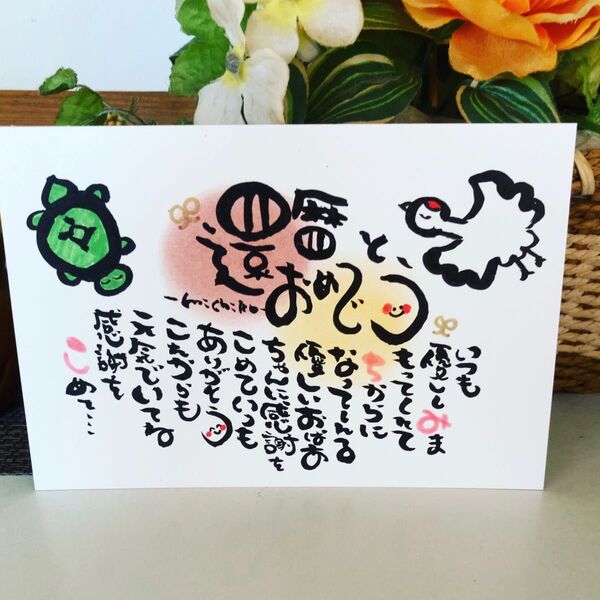 還暦
おめでとう
-michiko-
いつも
優しくみま
もってくれて
ちからに
なってくれる
優しいおばあ
ちゃんに感謝を
こめていつも
ありがとう
これからも
元気でいてね
感謝を
こめて…